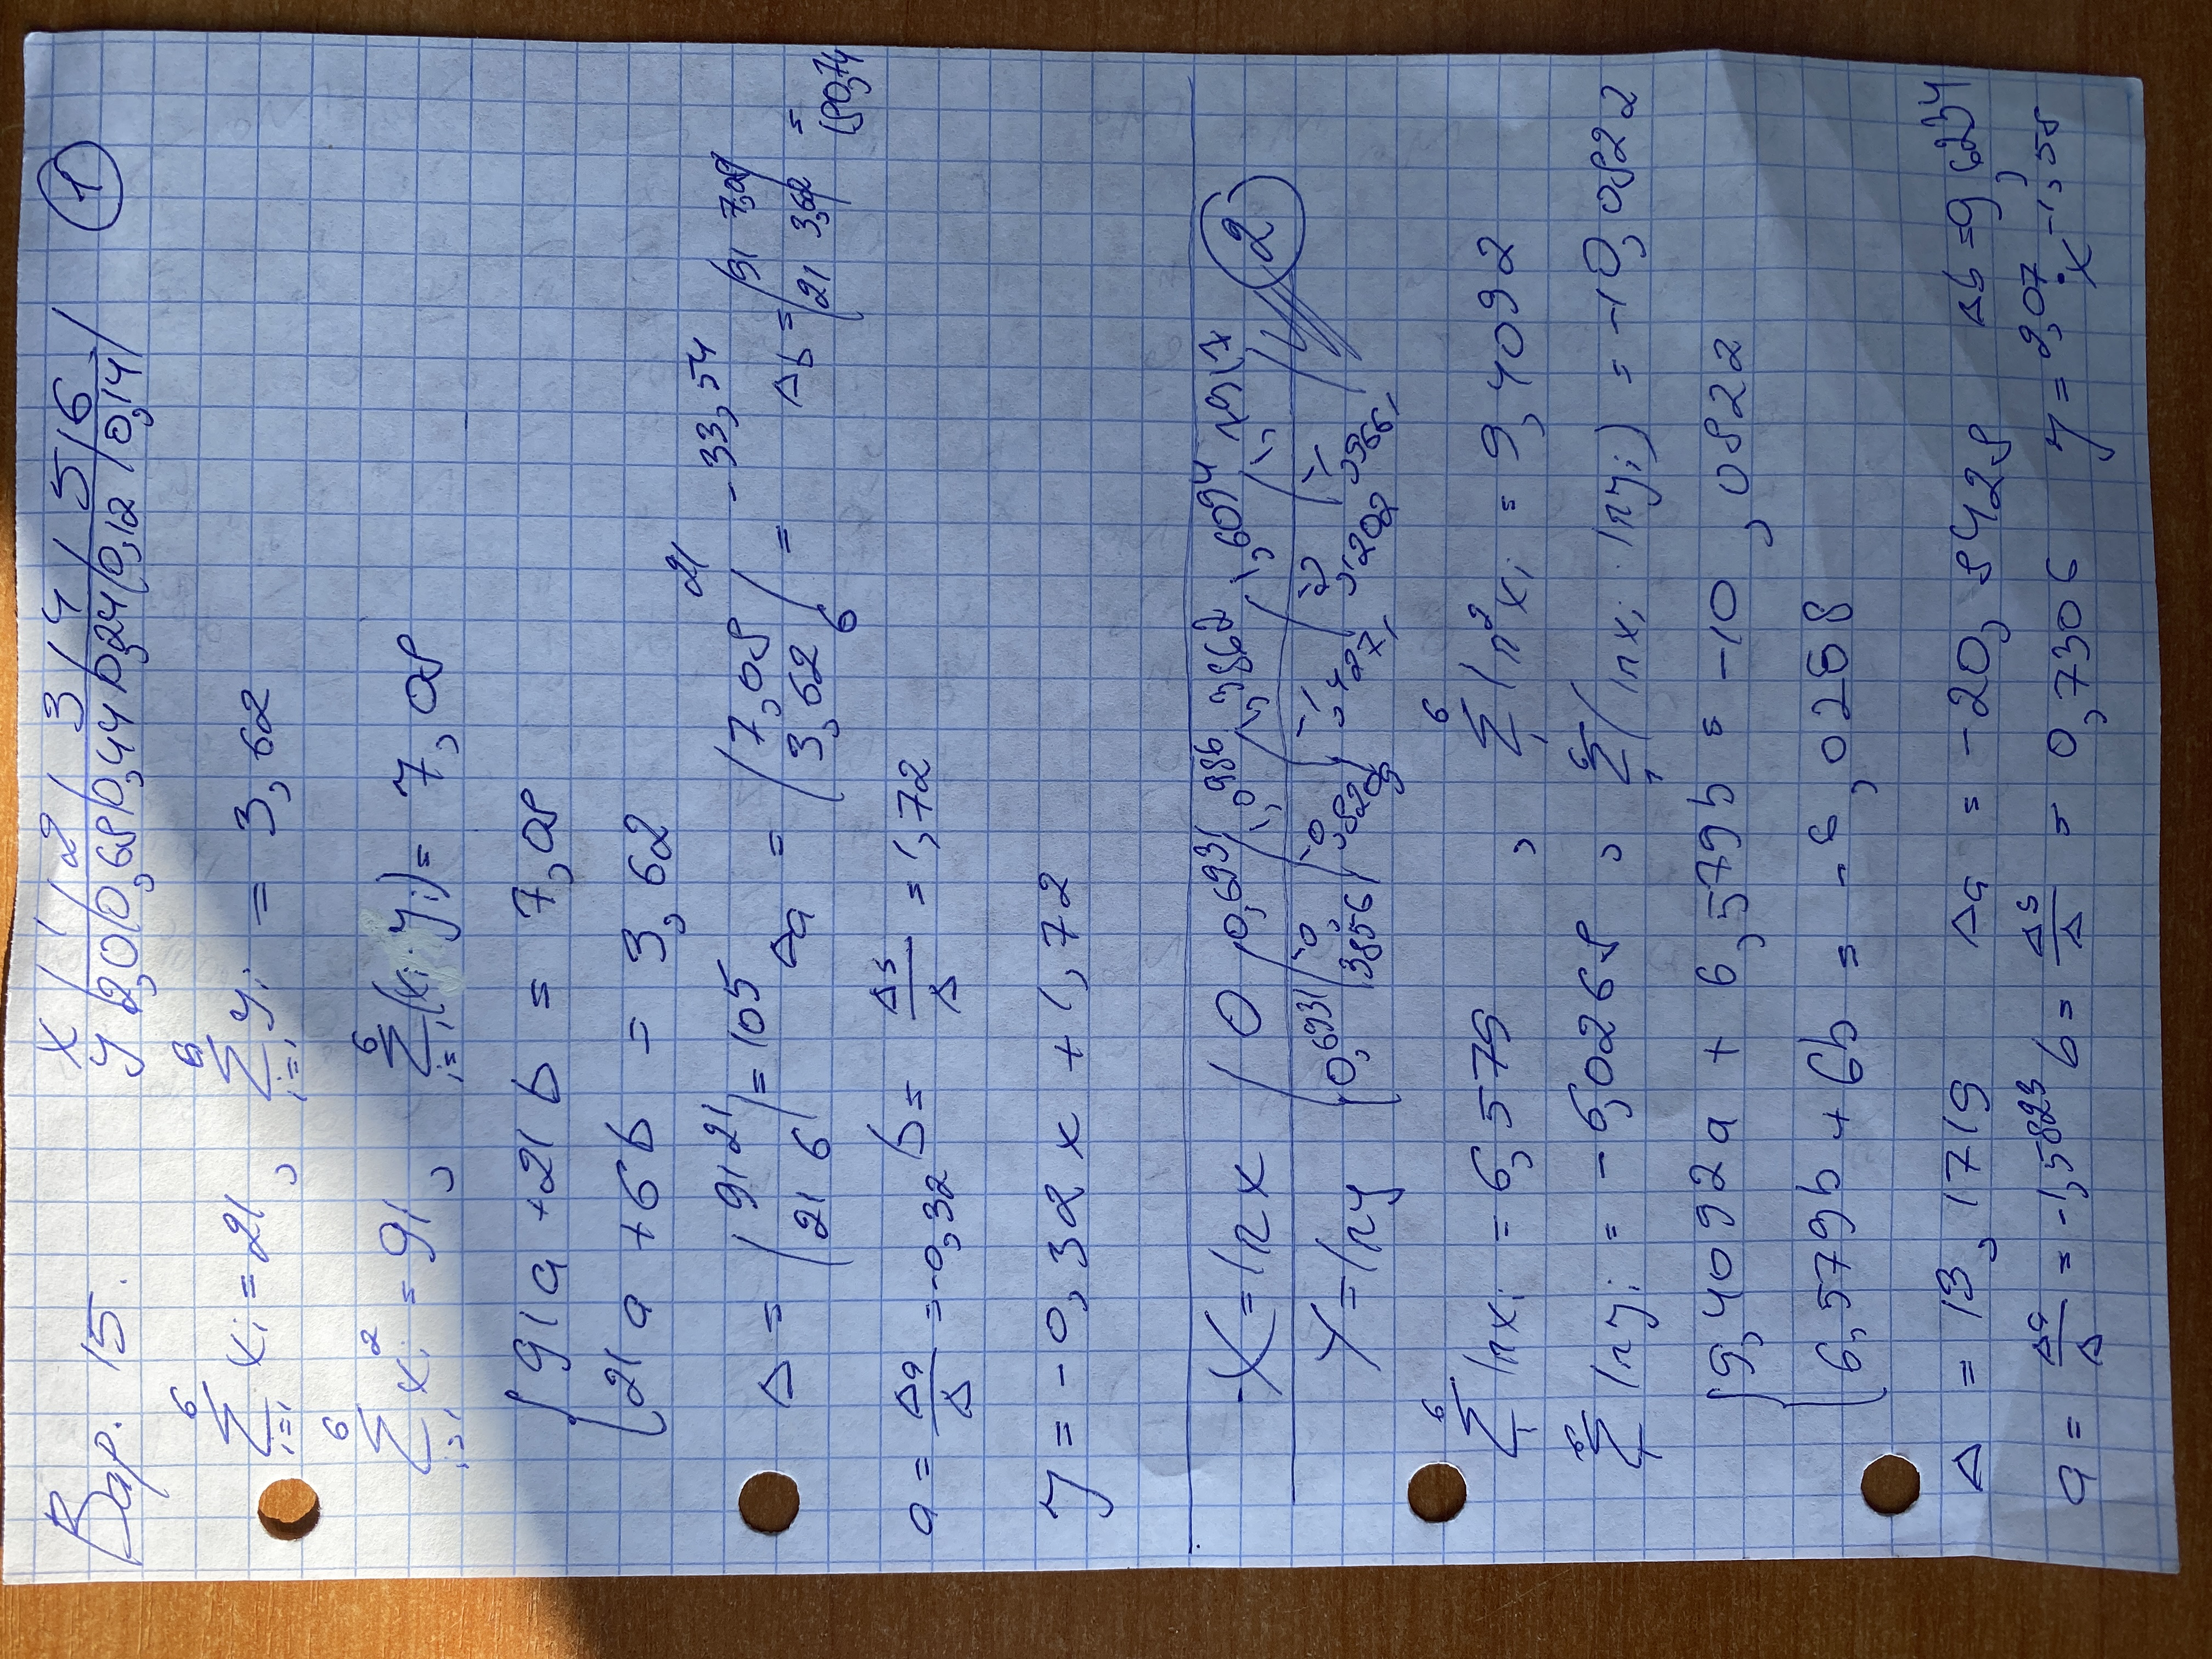 Вар. 15. x | 1 | 2 | 3 | 4 | 5 | 6 | ①
y | 2,0 | 0,68 | 0,44 | 0,24 | 0,12 | 0,14 |
6 ∑ i=1 xi = 21, 6 ∑ i=1 yi = 3,62
6 ∑ i=1 xi² = 91, 6 ∑ i=1 (xi·yi) = 7,08
{ 91a + 21b = 7,08
21a + 6b = 3,62
Δ = |91 21 21 6| = 105 Δa = |7,08 21 3,62 6| = -33,54 Δb = |91 7,08 21 3,62| = 180,74
a = Δa/Δ = -0,32 b = Δb/Δ = 1,72
y = -0,32x + 1,72
X = ln x | 0 | 0,6931 | 1,0986 | 1,3862 | 1,6094 | 1,7917 | ②
Y = ln y | 0,6931 | -0,3856 | -0,8209 | -1,4271 | -2,1202 | -1,9661 |
6 ∑ 1 ln xi = 6,579, 6 ∑ 1 ln² xi = 9,4092
6 ∑ 1 ln yi = -6,0268, 6 ∑ 1 (ln xi · ln yi) = -10,0822
{ 9,4092a + 6,579b = -10,0822
6,579b + 6b = -6,0268
Δ = 13,1719 Δa = -20,8428 Δb = 9,6234
a = Δa/Δ = -1,5823 b = Δb/Δ = 0,7306 y = 2,07 · x^-1,58